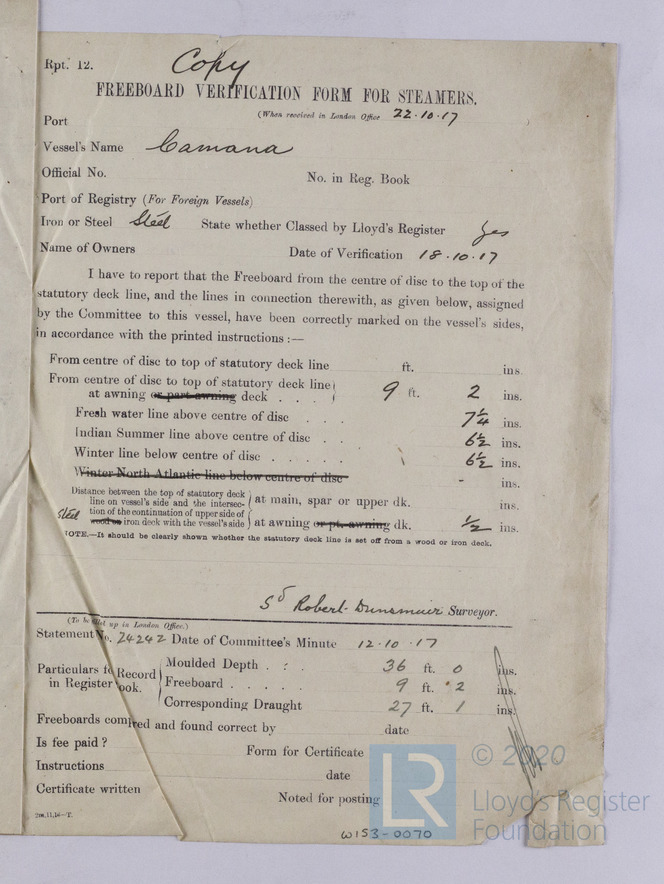 Rpt. 12.
Copy
FREEBOARD VERIFICATION FORM FOR STEAMERS.
(When received in London Office 22.10.17
Port
Vessel's Name Camana
Official No. No. in Reg. Book
Port of Registry (For Foreign Vessels)
Iron or Steel Steel State whether Classed by Lloyd's Register Yes
Name of Owners Date of Verification 18.10.17
I have to report that the Freeboard from the centre of disc to the top of the
statutory deck line, and the lines in connection therewith, as given below, assigned
by the Committee to this vessel, have been correctly marked on the vessel's sides,
in accordance with the printed instructions :—
From centre of disc to top of statutory deck line ft. ins.
From centre of disc to top of statutory deck line
at awning or part awning deck . . . 9 ft. 2 ins.
Fresh water line above centre of disc . . . 7¼ ins.
Indian Summer line above centre of disc . . 6½ ins.
Winter line below centre of disc . . . . . 6½ ins.
Winter North Atlantic line below centre of disc - ins.
Distance between the top of statutory deck
line on vessel's side and the intersec- at main, spar or upper dk. ins.
tion of the continuation of upper side of
Steel wood or iron deck with the vessel's side at awning or pt. awning dk. ½ ins.
NOTE.—It should be clearly shown whether the statutory deck line is set off from a wood or iron deck.
Sd Robert Dunsmuir Surveyor.
(To be filled up in London Office.)
Statement No. 24242 Date of Committee's Minute 12.10.17
Particulars fo Record Moulded Depth . . . 36 ft. 0 ins.
in Register ook. Freeboard . . . . . 9 ft. 2 ins.
Corresponding Draught 27 ft. 1 ins.
Freeboards com red and found correct by date
Is fee paid ? Form for Certificate
Instructions date
Certificate written Noted for posting
2m,11,16—T.
W153-0070
© 2020
LR Lloyd's Register
Foundation